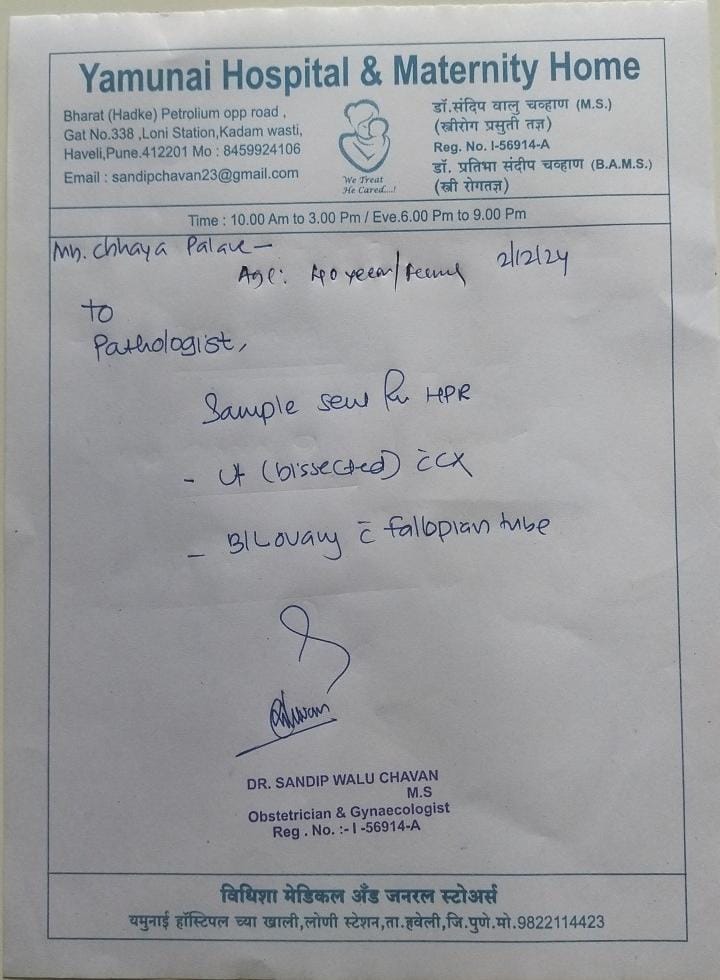 Yamunai Hospital & Maternity Home
Bharat (Hadke) Petrolium opp road ,
Gat No.338 ,Loni Station,Kadam wasti,
Haveli,Pune.412201 Mo : 8459924106
Email : sandipchavan23@gmail.com
We Treat
He Cared....!
डॉ.संदिप वालु चव्हाण (M.S.)
(स्त्रीरोग प्रसुती तज्ञ)
Reg. No. I-56914-A
डॉ. प्रतिभा संदीप चव्हाण (B.A.M.S.)
(स्त्री रोगतज्ञ)
Time : 10.00 Am to 3.00 Pm / Eve.6.00 Pm to 9.00 Pm
Chhaya Palave
Age: 40 year/
2/12/24
To
Pathologist,
Sample HPR
- Ut (bissected) c̄ CX
- B/L ovary c̄ fallopian tube
Chavan
DR. SANDIP WALU CHAVAN
M.S
Obstetrician & Gynaecologist
Reg . No. :- I -56914-A
विधिशा मेडिकल अँड जनरल स्टोअर्स
यमुनाई हॉस्पिटल च्या खाली,लोणी स्टेशन,ता.हवेली,जि.पुणे.मो.9822114423